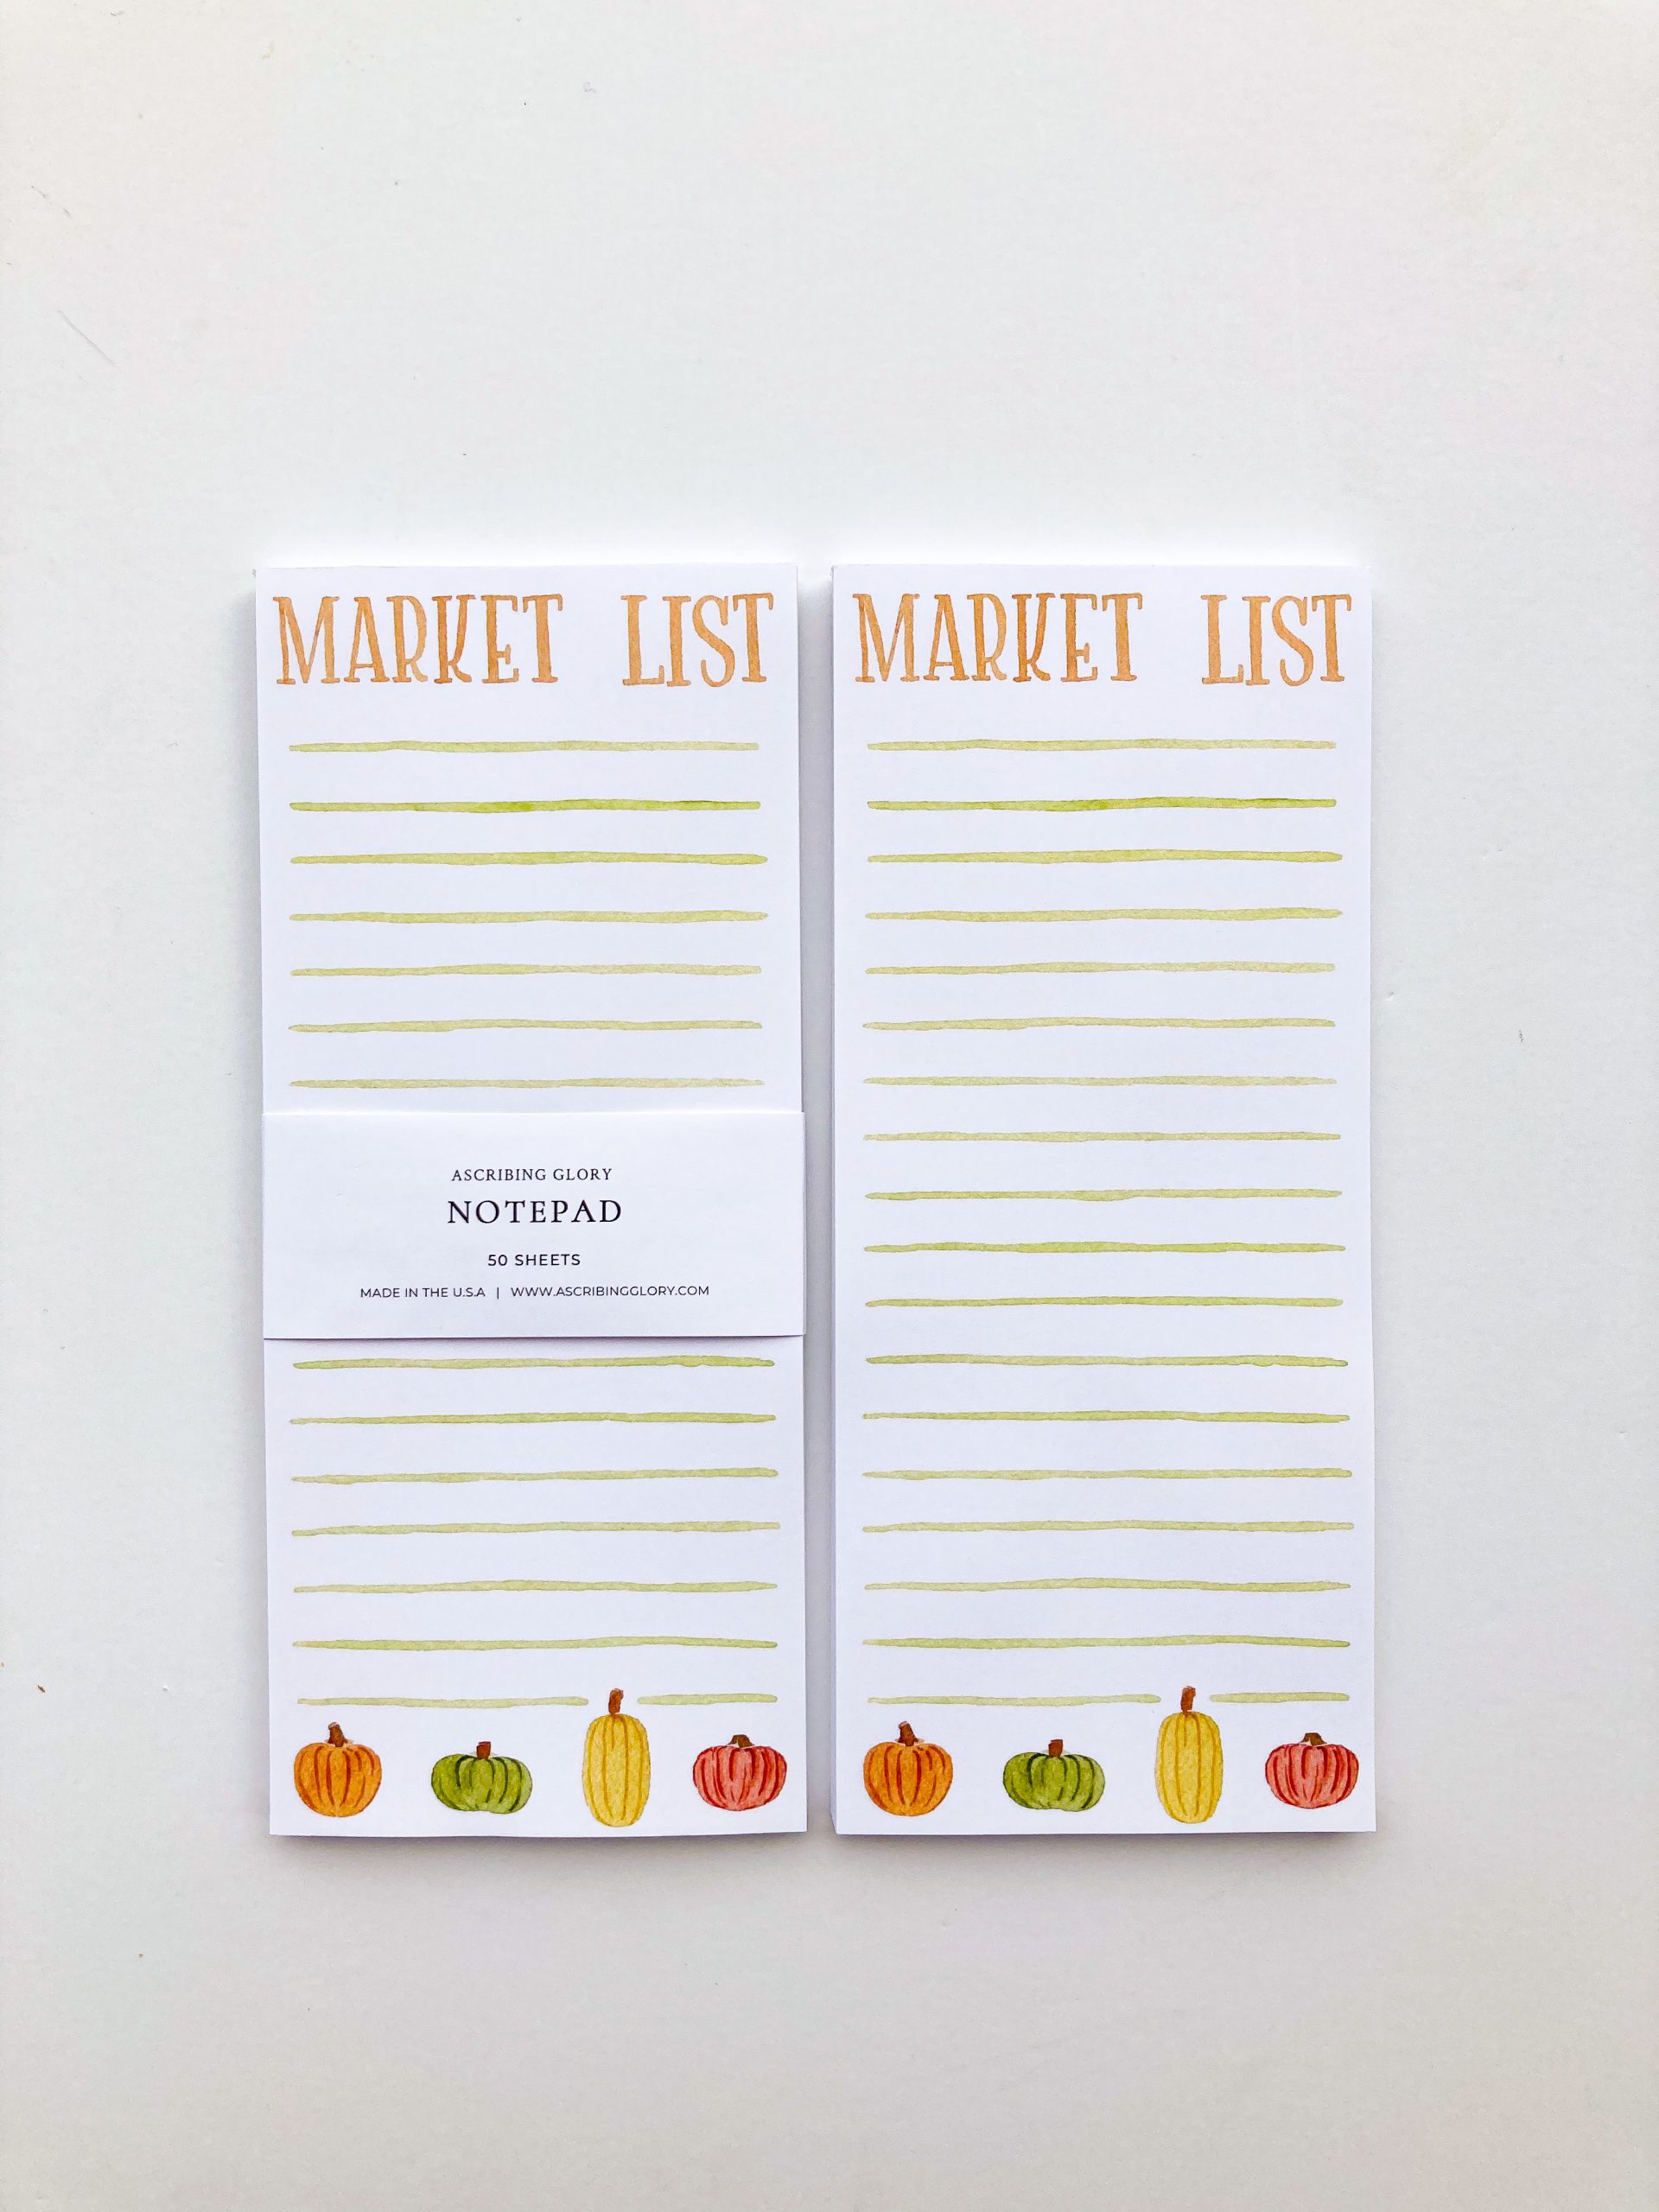 MARKET LIST
ASCRIBING GLORY
NOTEPAD
50 SHEETS
MADE IN THE U.S.A | WWW.ASCRIBINGGLORY.COM
MARKET LIST